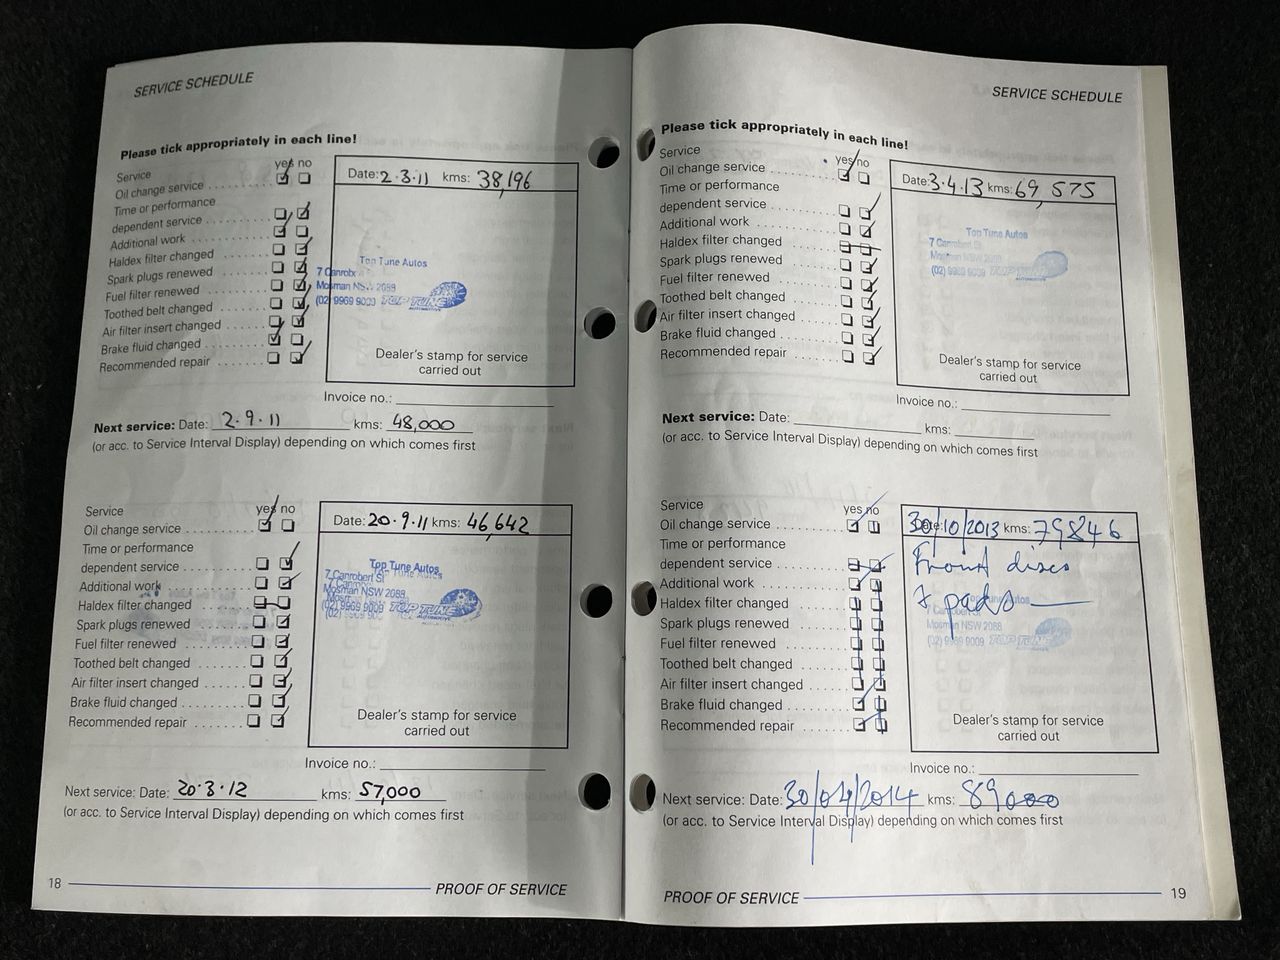 SERVICE SCHEDULE
Please tick appropriately in each line!
yes no
Service
Oil change service
Time or performance
dependent service
Additional work
Haldex filter changed
Spark plugs renewed
Fuel filter renewed
Toothed belt changed
Air filter insert changed
Brake fluid changed
Recommended repair
Date: 2.3.11 kms: 38,196
Top Tune Autos
7 Canrob
Mosman NSW 2088
(02) 9969 9009 TOP TUNE
AUTOMOTIVE
Dealer's stamp for service
carried out
Invoice no.:
Next service: Date: 2.9.11 kms: 48,000
(or acc. to Service Interval Display) depending on which comes first
yes no
Service
Oil change service
Time or performance
dependent service
Additional work
Haldex filter changed
Spark plugs renewed
Fuel filter renewed
Toothed belt changed
Air filter insert changed
Brake fluid changed
Recommended repair
Date: 20.9.11 kms: 46,642
Top Tune Autos
7 Canrobert St
Mosman NSW 2088
(02) 9969 9009 TOP TUNE
AUTOMOTIVE
Dealer's stamp for service
carried out
Invoice no.:
Next service: Date: 20.3.12 kms: 57,000
(or acc. to Service Interval Display) depending on which comes first
18 PROOF OF SERVICE
SERVICE SCHEDULE
Please tick appropriately in each line!
yes no
Service
Oil change service
Time or performance
dependent service
Additional work
Haldex filter changed
Spark plugs renewed
Fuel filter renewed
Toothed belt changed
Air filter insert changed
Brake fluid changed
Recommended repair
Date: 3.4.13 kms: 69,575
Top Tune Autos
7 Canrobert St
Mosman NSW 2088
(02) 9969 9009 TOP TUNE
Dealer's stamp for service
carried out
Invoice no.:
Next service: Date: kms:
(or acc. to Service Interval Display) depending on which comes first
yes no
Service
Oil change service
Time or performance
dependent service
Additional work
Haldex filter changed
Spark plugs renewed
Fuel filter renewed
Toothed belt changed
Air filter insert changed
Brake fluid changed
Recommended repair
Date: 30/10/2013 kms: 79846
Front discs
+ pads
Top Tune Autos
7 Canrobert St
Mosman NSW 2088
(02) 9969 9009 TOP TUNE
AUTOMOTIVE
Dealer's stamp for service
carried out
Invoice no.:
Next service: Date: 30/04/2014 kms: 89000
(or acc. to Service Interval Display) depending on which comes first
PROOF OF SERVICE 19